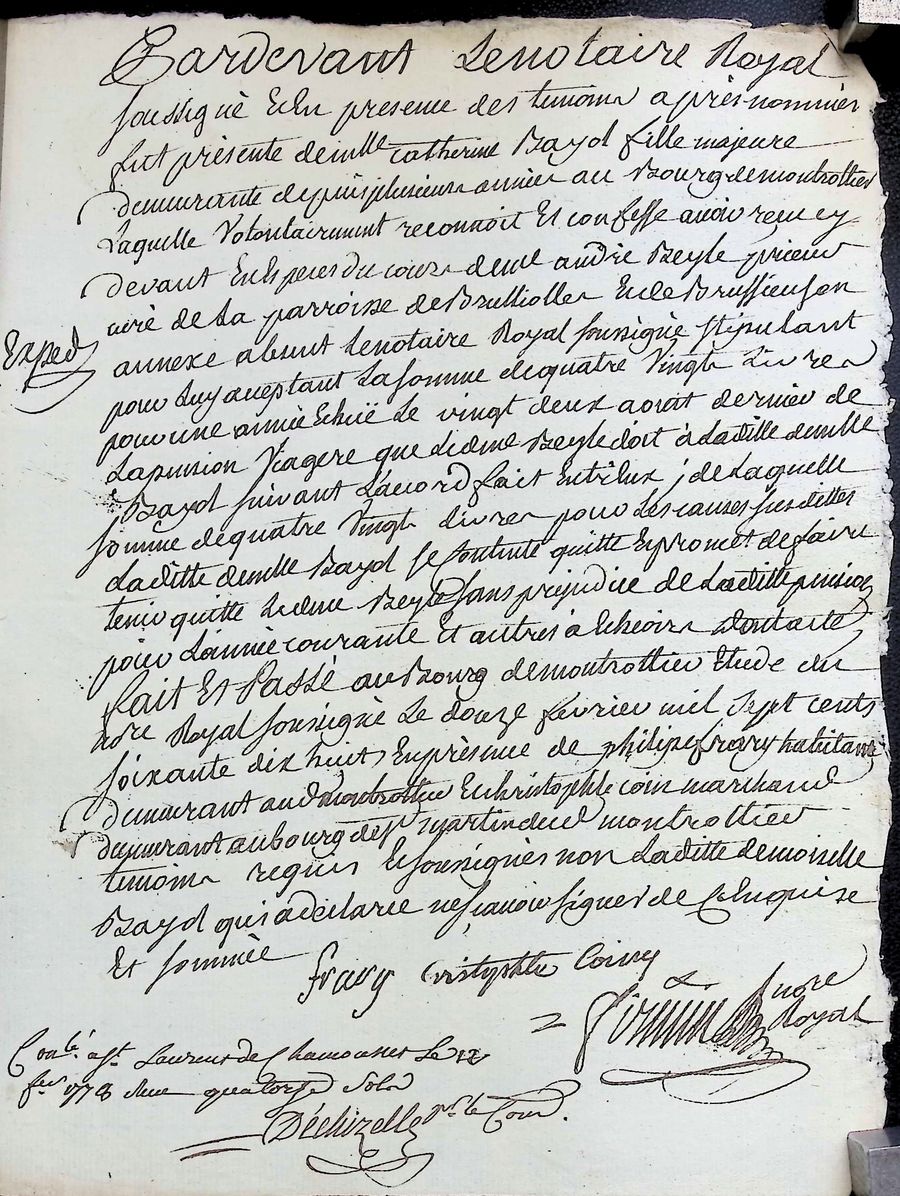 Pardevant Lenotaire Royal
soussigné Et En presence des temoins aprés nommés
fut présente demlle Catherine Bayol fille majeure
demeurante depuis plusieurs années au Bourg demontrottier
Laquelle Volontairement reconnoit Et confesse avoir reçu cy
devant En Especes du cours deme andré Beyle prieur
curé de La parroisse deBrullioles Et de Brussieu son
annexe absent Lenotaire Royal soussigné stipulant
Exped
pour Luy acceptant La somme de quatre Vingts Livres
pour une année Echuë Le vingt deux aoust dernier de
La pension Viagere que Ledme Beyle doit à Laditte demlle
Bayol suivant L'accord fait Entr'Eux ; de Laquelle
somme de quatre Vingts Livres pour Les causes susdittes
Laditte demlle Bayol se Contente quitte Et promet de faire
tenir quitte Ledme Beyle sans préjudice de Laditte pension
pour L'année courante Et autres à Echeoir dont acte
fait Et Passé au Bourg de montrottier Etude du
ndre Royal soussigné Le douze fevrier mil sept cents
soixante dix huit En présence de philipe frary habitant
demeurant aud montrottier Et christophle coin marchand
demeurant au bourg de st martin dud montrottier
temoins requis Et soussignés non Laditte demoiselle
Bayol qui a déclaré ne sçavoir signer de ce Enquise
Et sommée
frary Cristophle Coiny
Firmin nore Royal
Conlé a st Laurent de Chamousset Le 12
fer 1778 Reçu quatorze sols
Déchizelle pr le Cond.